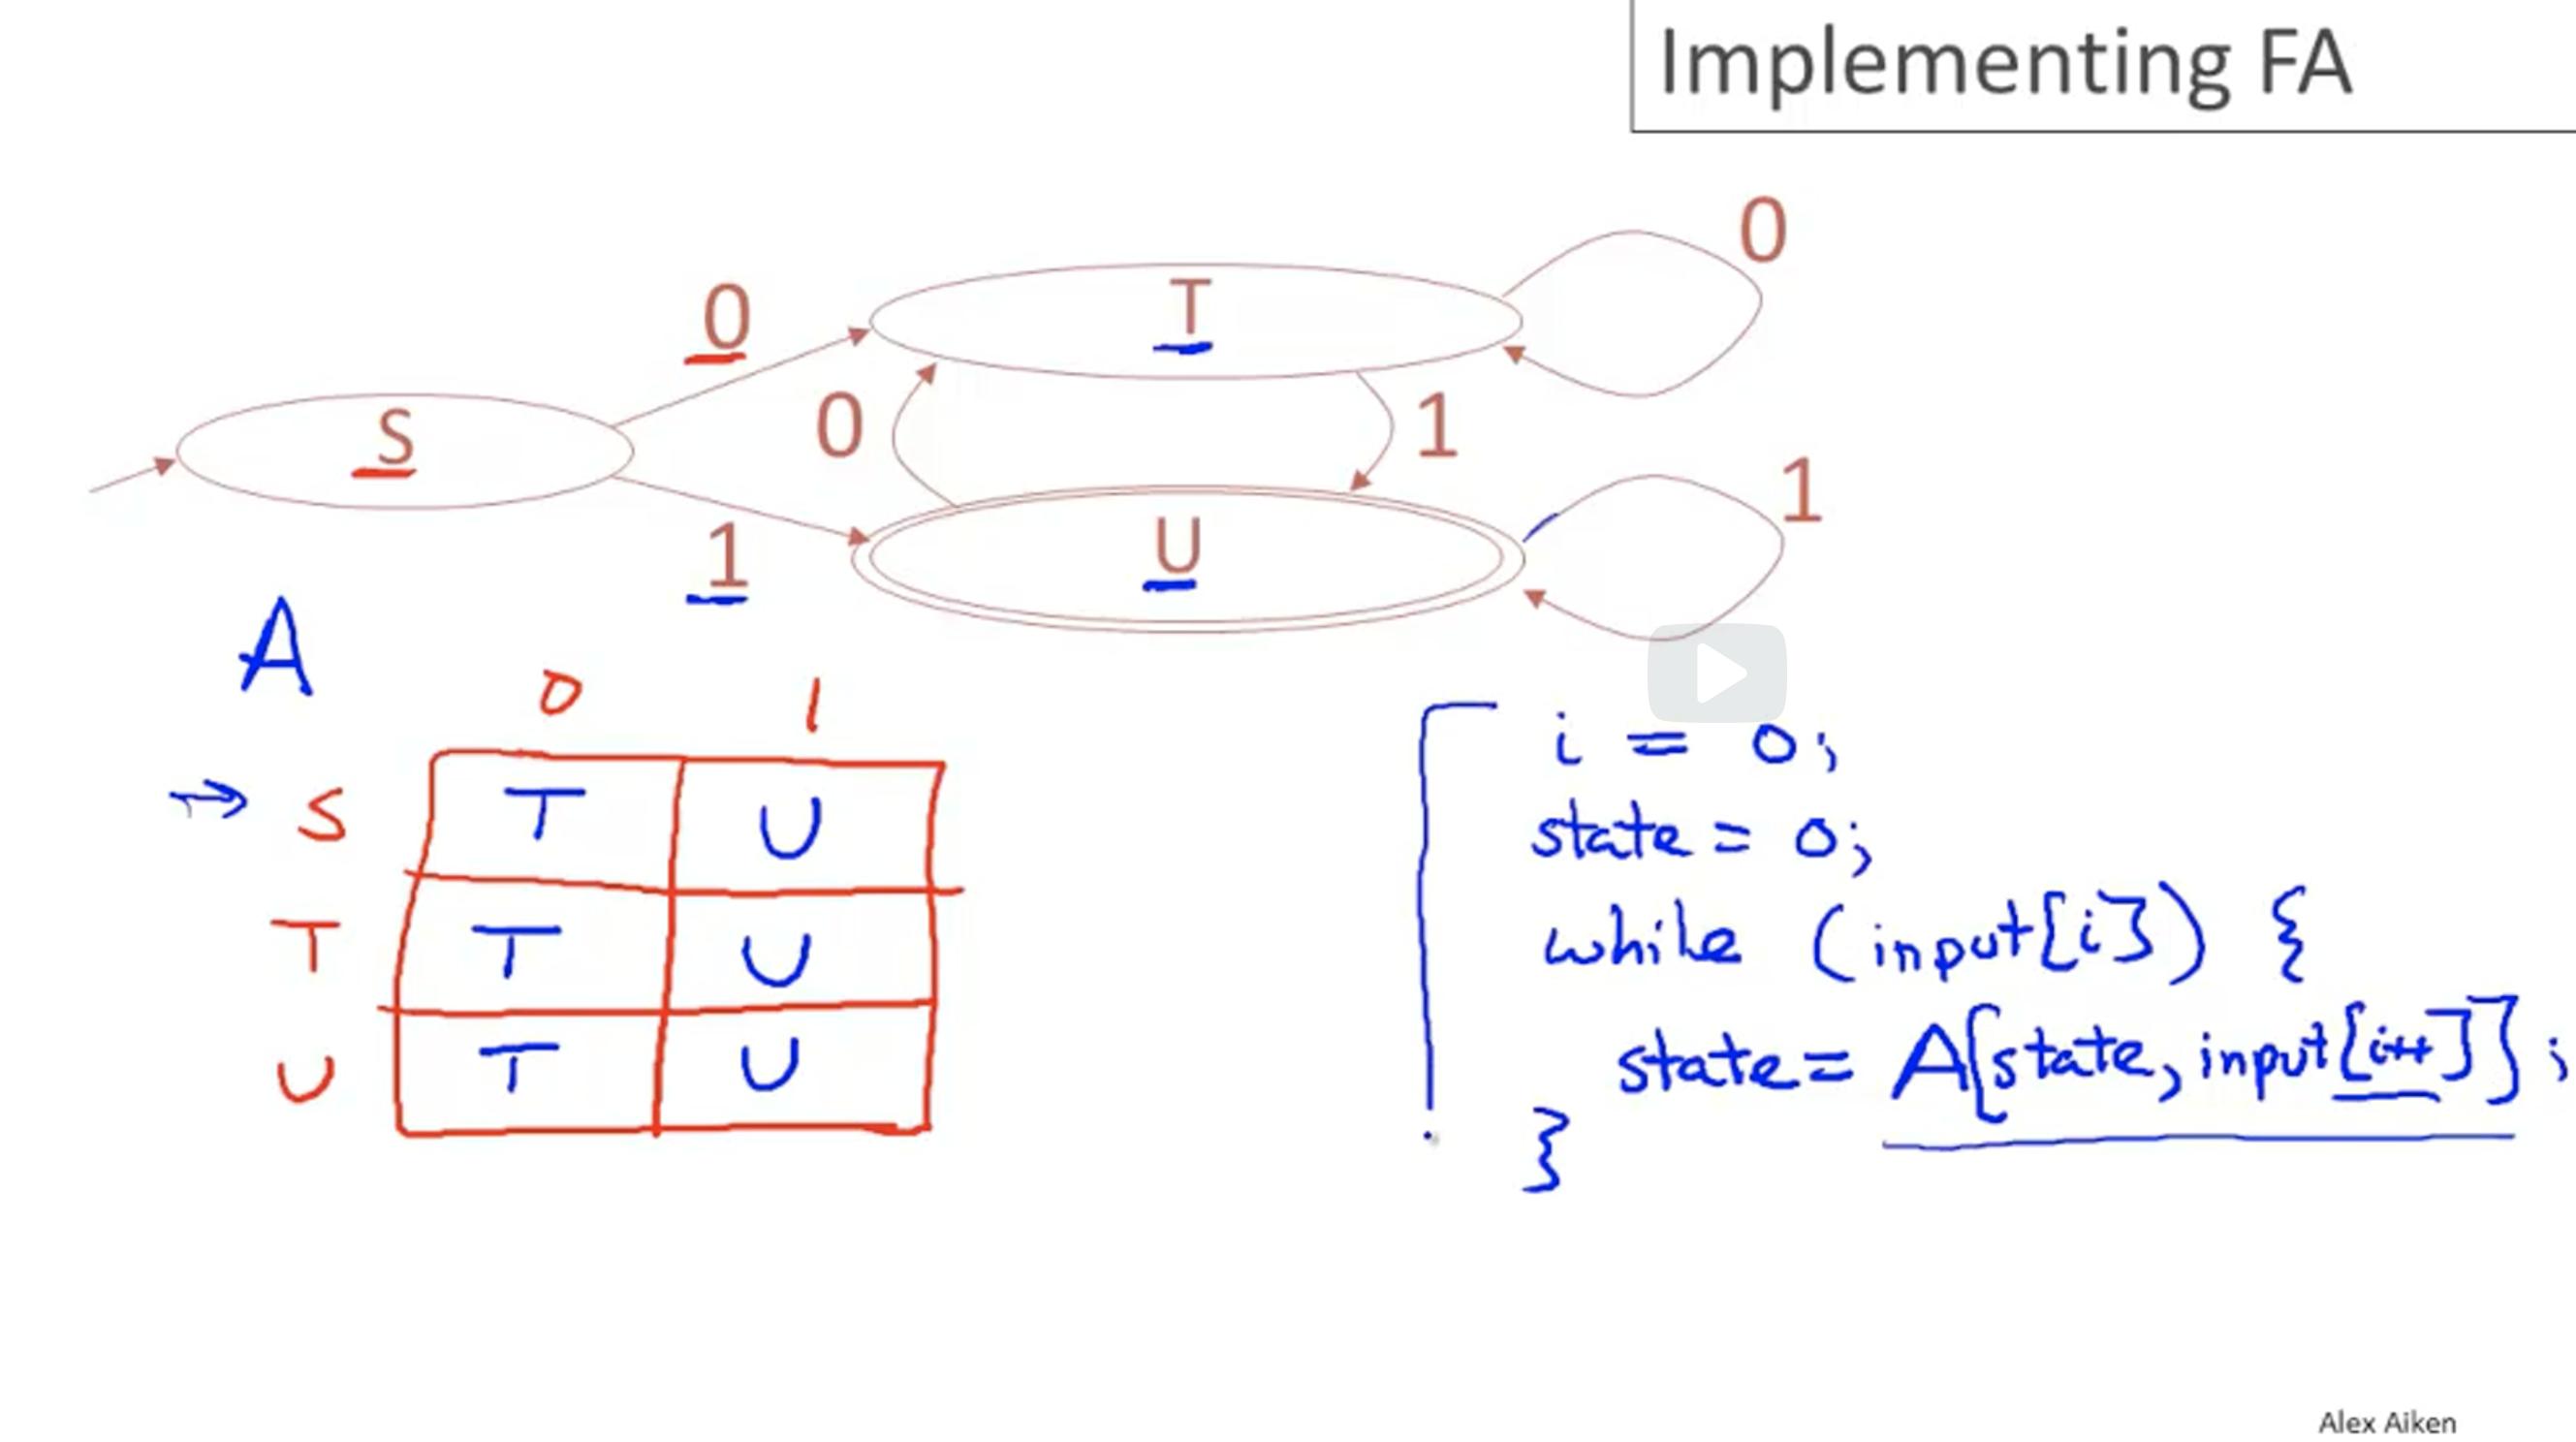 Implementing FA
0
T
0
S
0
1
1
U
1
A
0 1
S T U
T T U
U T U
i = 0;
state = 0;
while (input[i]) {
state = A[state, input[i++]];
}
Alex Aiken